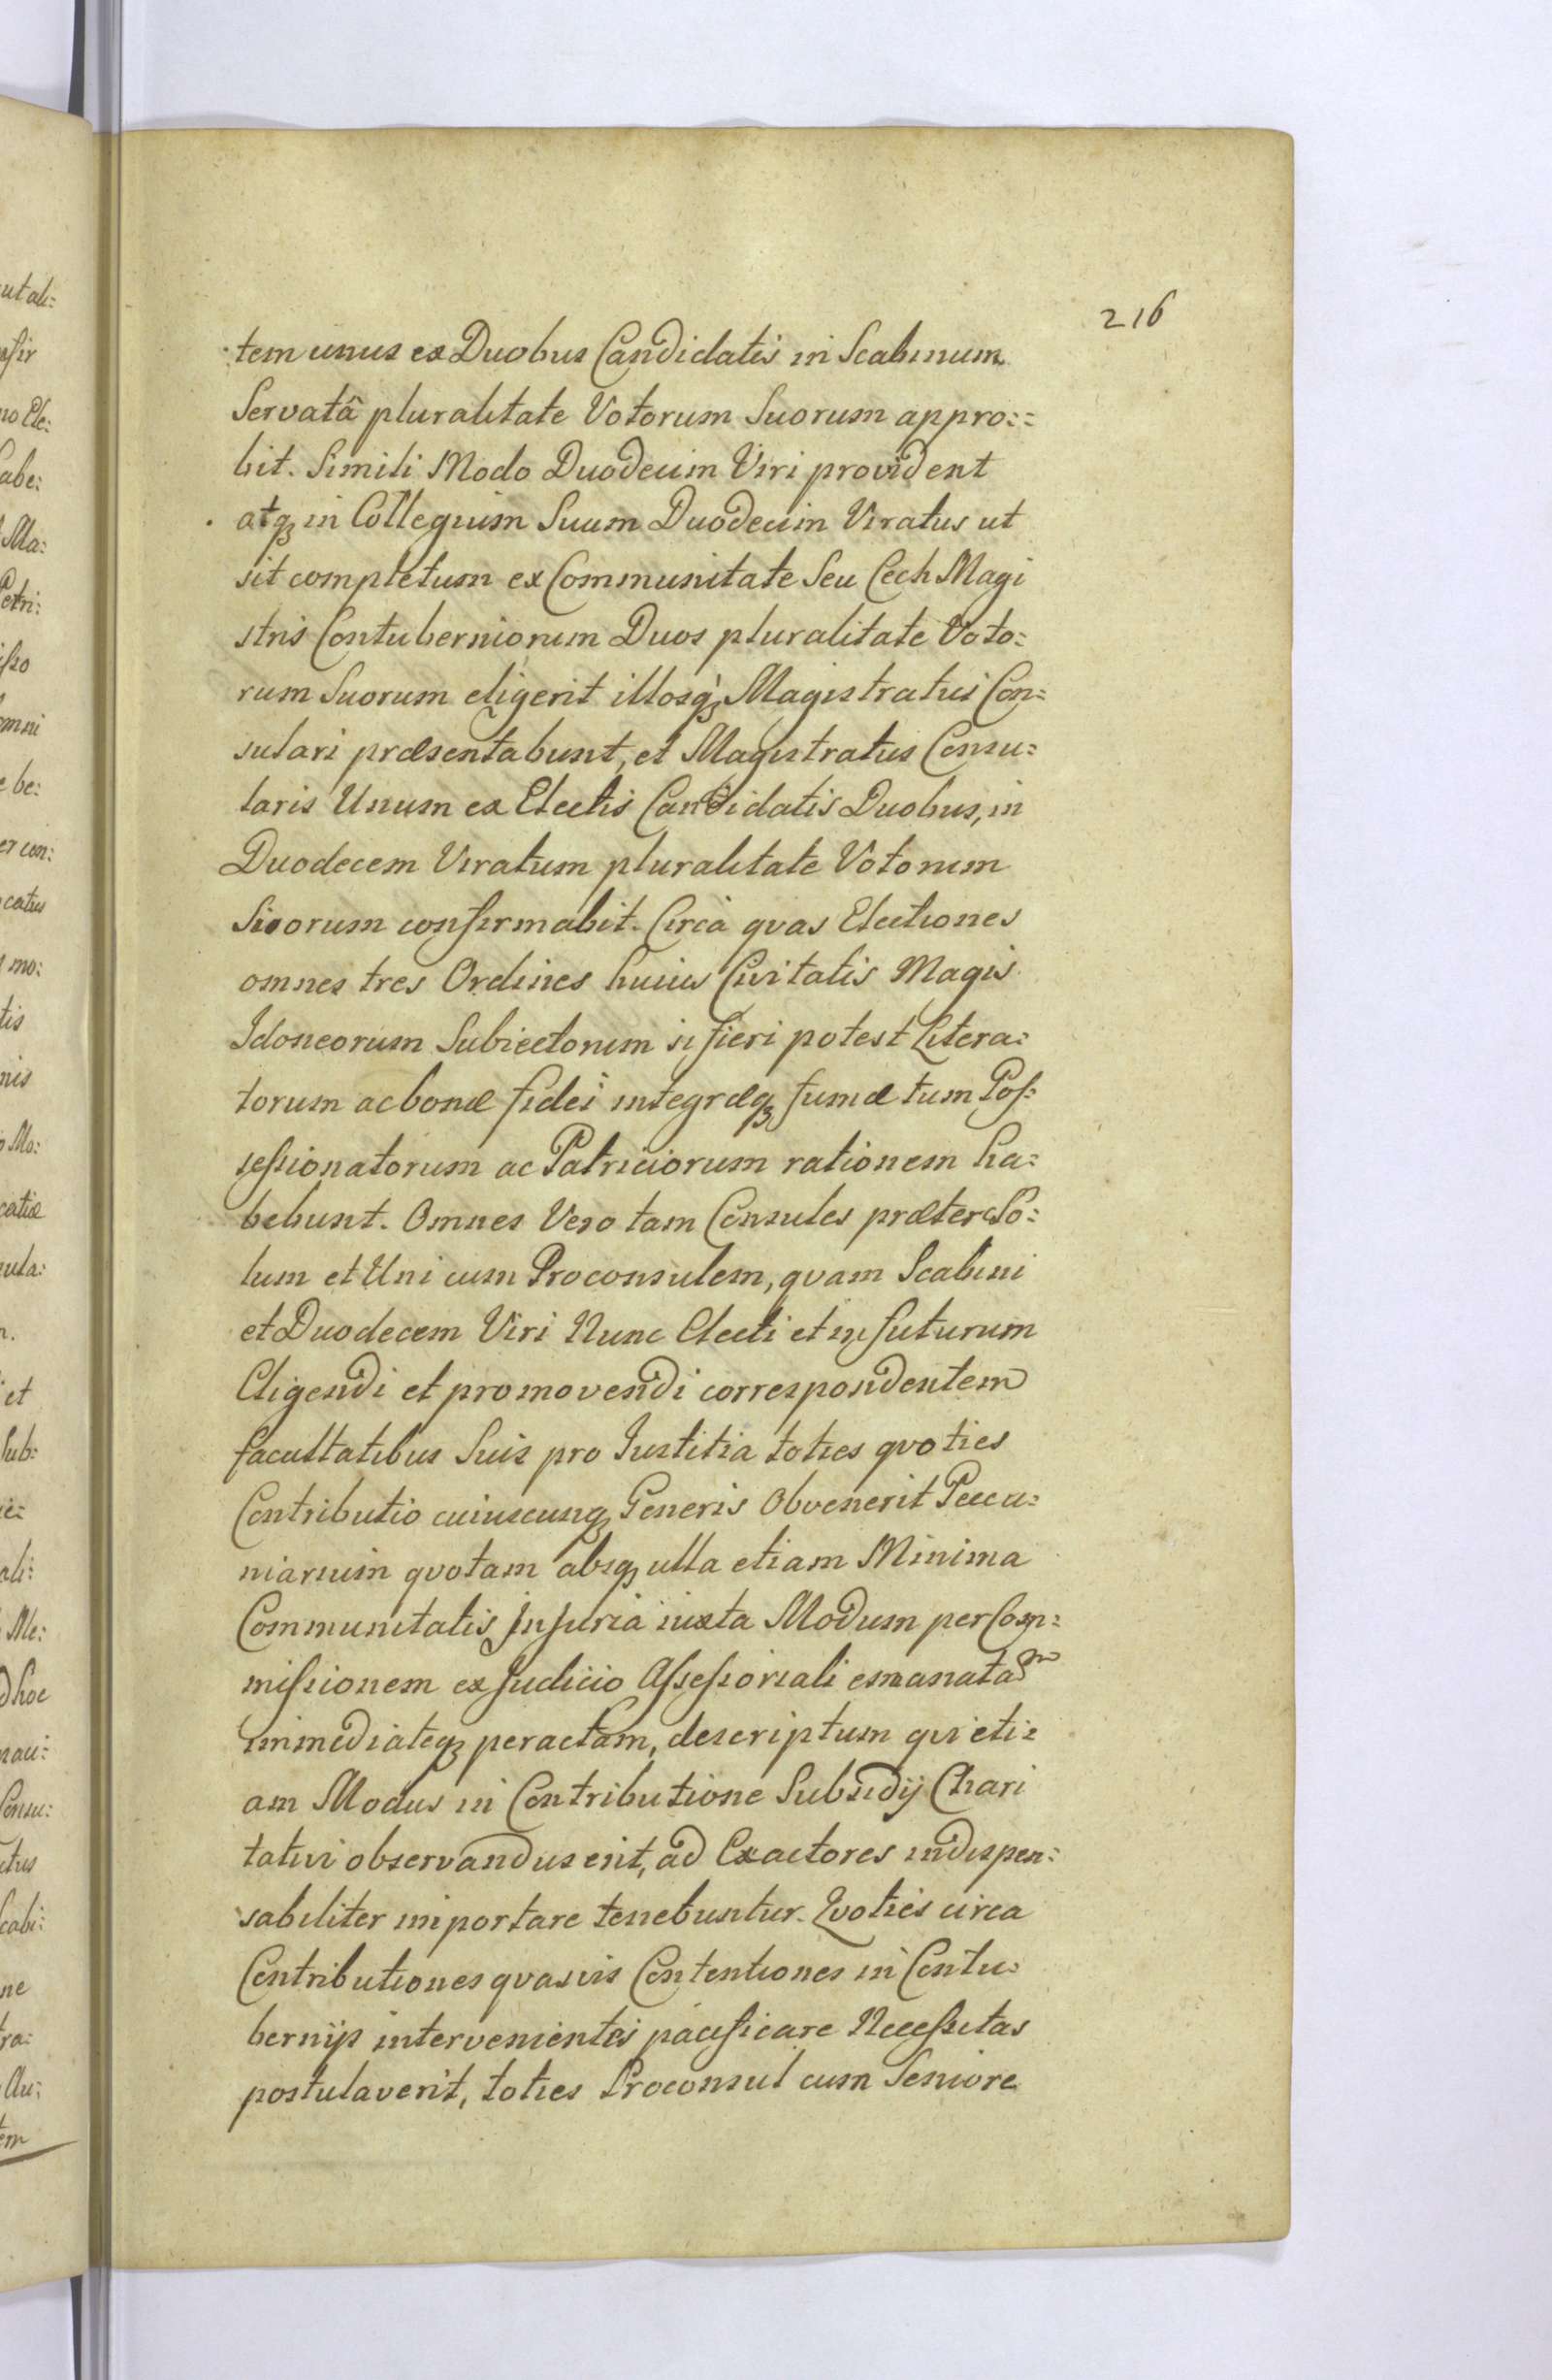 216
tem unus ex Duobus Candidatis in Scabinum
Servatâ pluralitate Votorum Suorum appro:=
bit. Simili Modo Duodecim Viri provident
atqꝫ in Collegium Suum Duodecim Viratus ut
sit completum ex Communitate Seu Cech Magi
stris Contuberniorum Duos pluralitate Voto:
rum Suorum eligerit illosqꝫ Magistratui Con=
sulari præsentabunt, et Magistratus Consu:
laris Unum ex Electis Candidatis Duobus, in
Duodecem Viratum pluralitate Votorum
Suorum confirmabit. Circà qvas Electiones
omnes tres Ordines huius Civitatis Magis
Idoneorum Subiectorum si fieri potest Litera:
torum ac bonæ fidei integræqꝫ fumæ tum Pos:
sessionatorum ac Patriciorum rationem ha:
bebunt. Omnes Vero tam Consules præter So:
lum et Uni cum Proconsulem, qvam Scabini
et Duodecem Viri Nunc Electi et in futurum
Eligendi et promovendi correspondentem
facultatibus Suis pro Iustitia toties qvoties
Contributio cuiuscunqꝫ Generis Obvenerit Pecu:
niarium qvotam absqꝫ ulla etiam Minima
Communitatis Injuria iuxta Modum per Com:
missionem ex Judicio Assessoriali emanatam
immediateqꝫ peractam, descriptum qvi eti:
am Modus in Contributione Subsidij Chari
tativi observandus erit, ad Exactores indispen:
sabiliter importare tenebuntur. Qvoties circa
Contributiones qvasvis Contentiones in Contu:
bernijs intervenientes pacificare Necessitas
postulaverit, toties Proconsul cum Seniore